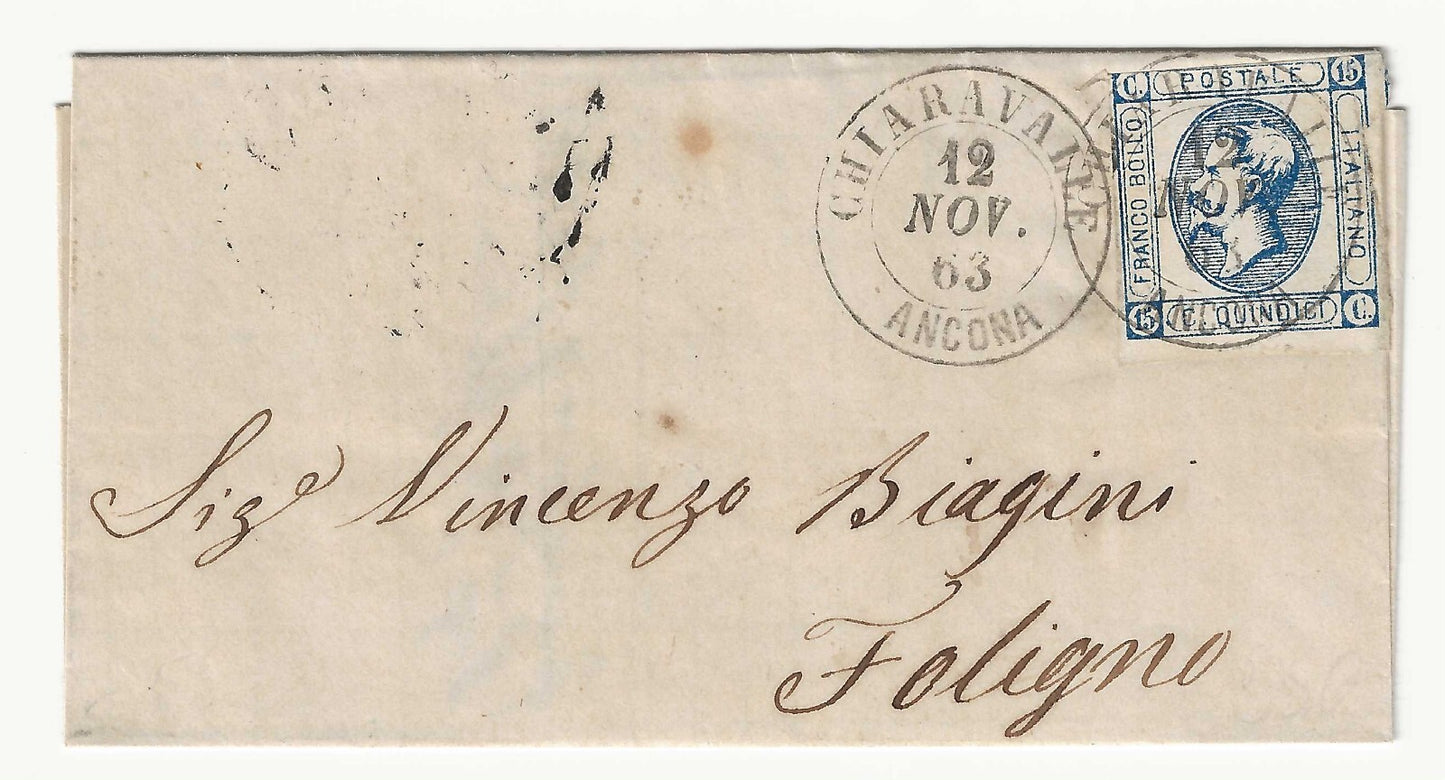 CHIARAVALLE
12
NOV.
63
ANCONA
C. POSTALE 15
FRANCO BOLLO
ITALIANO
15 C. QUINDICI C.
12
NOV.
63
ANCONA
Sigʳ Vincenzo Biagini
Foligno